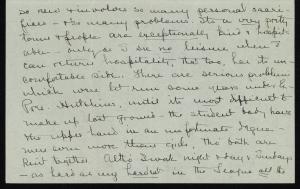 so new & involves so many personal sacri-
fices - & so many problems. Its a very pretty
town & people are exceptionally kind & hospit-
able - only, as I see no leisure when I
can return hospitality, that too, has its un-
comfortable side. There are serious problems
which were let run some years under
Pres. Hutchins, until its most difficult to
make up lost ground - the student body have
the upper hand in an unfortunate degree -
men even more than girls, tho both are
knit together. Altho I work night & day & Sundays
- as hard as my hardest in the League all the